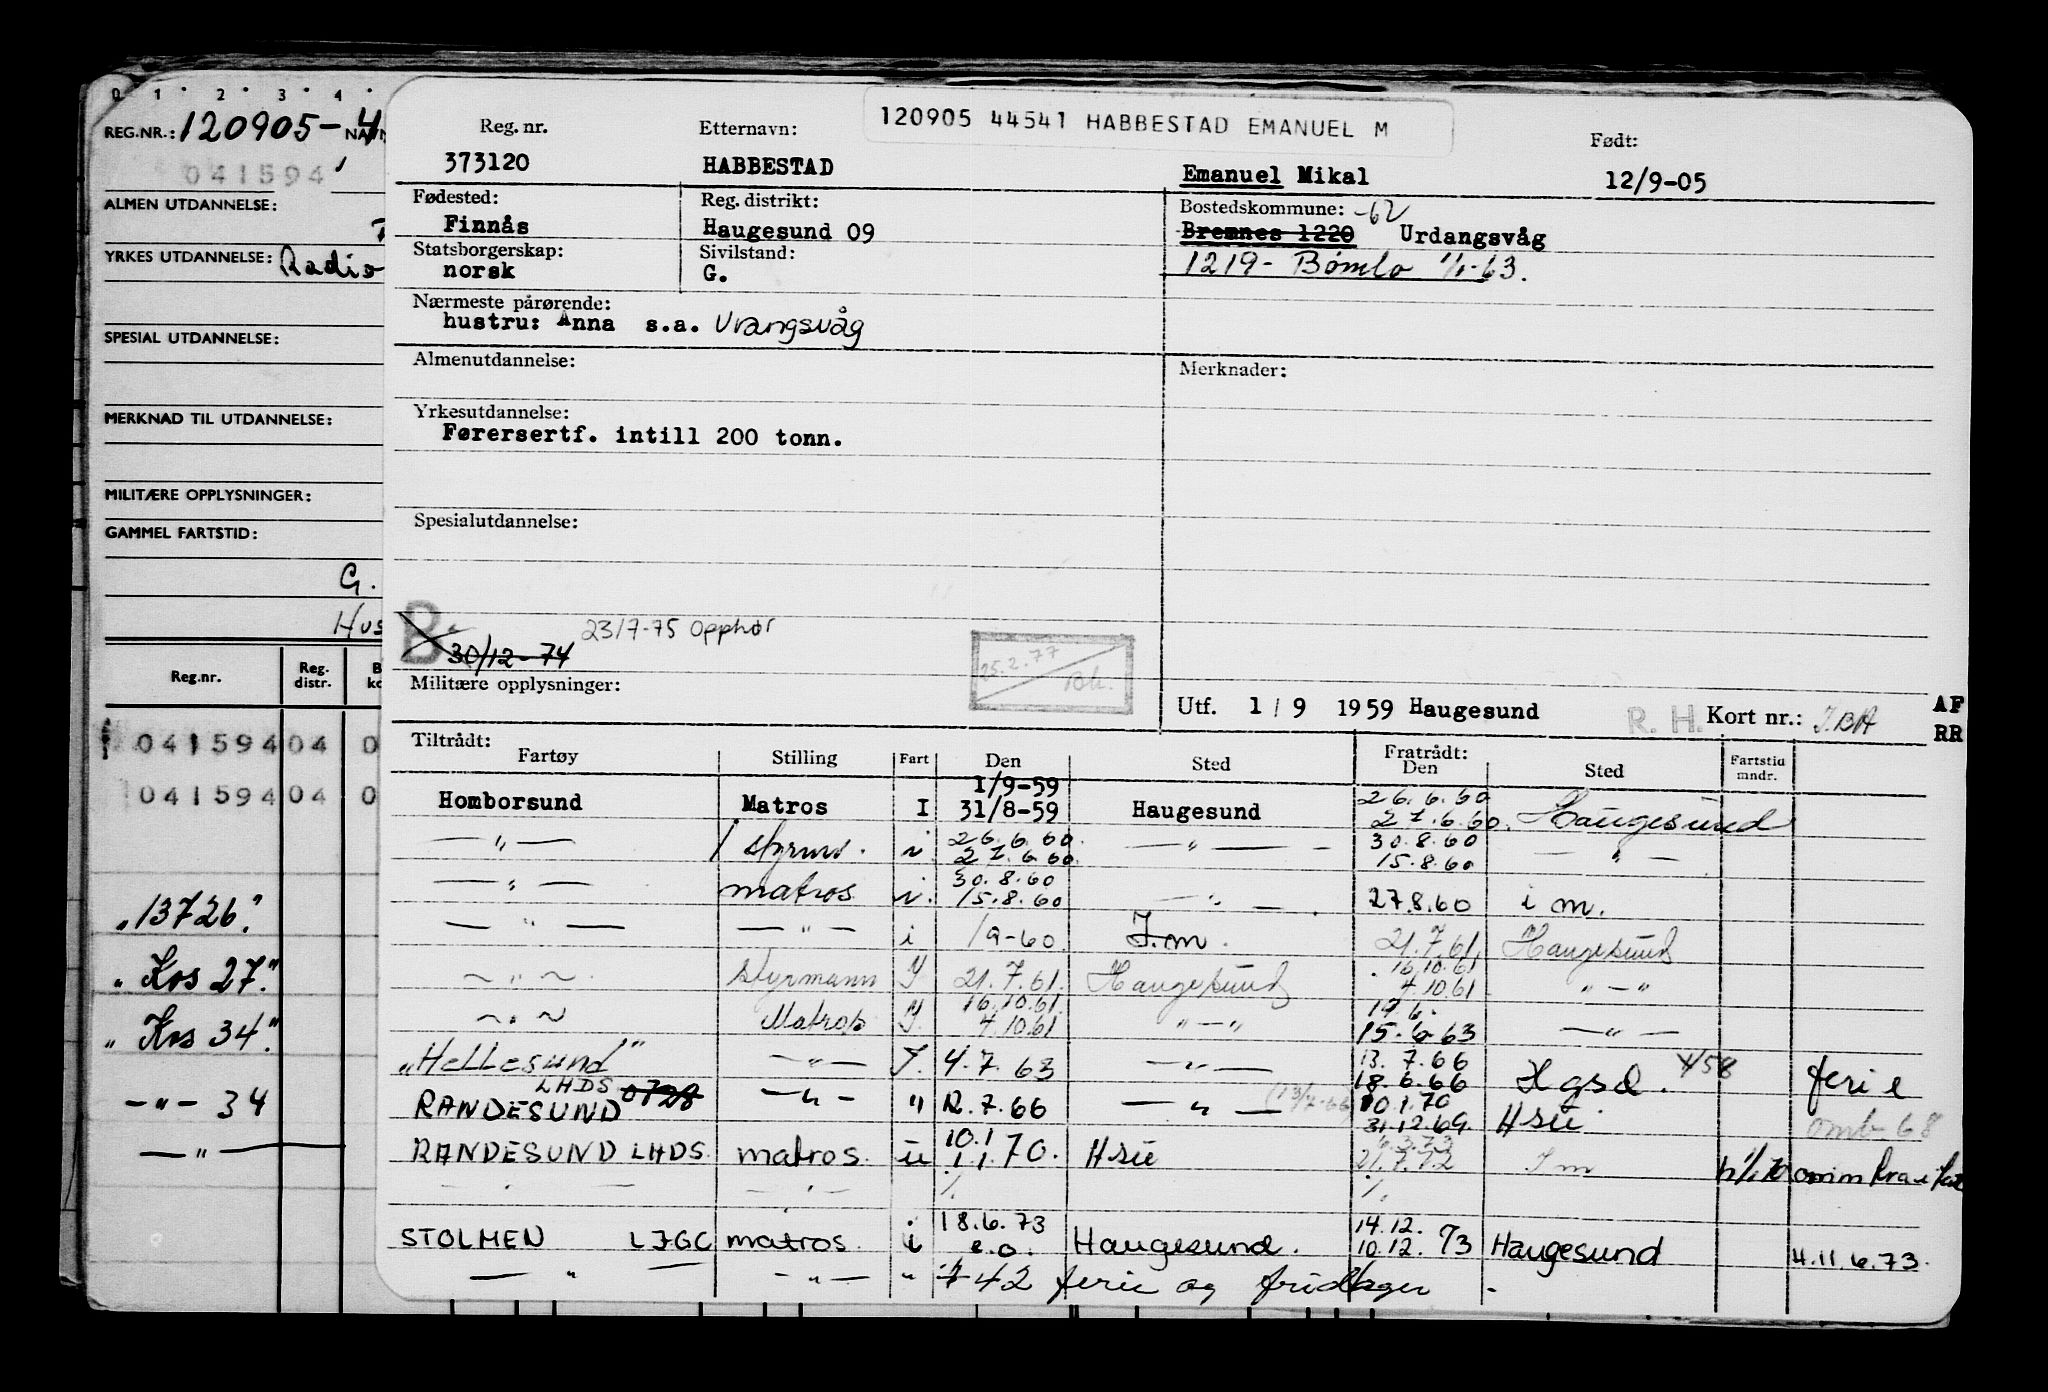 0 1 2 3 4
REG.NR.: 120905-4
041594
ALMEN UTDANNELSE:
YRKES UTDANNELSE: Radio
SPESIAL UTDANNELSE:
MERKNAD TIL UTDANNELSE:
MILITÆRE OPPLYSNINGER:
GAMMEL FARTSTID:
G.
Hus
Reg.nr. Reg. distr.
041594 04 0
041594 04 0
"13726."
"Kvs 27."
"Kvs 34."
-"- 34
-"-
120905 44541 HABBESTAD EMANUEL M
Reg. nr. Etternavn: Født:
373120 HABBESTAD Emanuel Mikal 12/9-05
Fødested: Reg. distrikt: Bostedskommune: -62
Finnås Haugesund 09 Bremnes 1220 Urdangsvåg
Statsborgerskap: Sivilstand:
norsk G. 1219- Bømlo 1/1-63.
Nærmeste pårørende:
hustru: Anna s.a. Vrangsvåg
Almenutdannelse: Merknader:
Yrkesutdannelse:
Førersertf. intill 200 tonn.
Spesialutdannelse:
B 30/12-74 23/7-75 Opphør
25.2.77
Militære opplysninger:
Utf. 1/9 1959 Haugesund R. H. Kort nr.: AF
RR
Tiltrådt: Fratrådt:
Fartøy Stilling Fart Den Sted Den Sted Fartstid mndr.
1/9-59 26.6.60
Homborsund Matros I 31/8-59 Haugesund 27.6.60. Haugesund
26.6.60. 30.8.60
-"- styrm. i. 27.6.60. -"- 15.8.60 -"-
30.8.60
-"- matros i. 15.8.60 -"- 27.8.60 i m.
-"- -"- i 1/9-60 I.m. 21.7.61. Haugesund
16.10.61
-"- Styrmann I 21.7.61. Haugesund 4.10.61 "-"
16.10.61. 17.6.
-"- Matros I. 4.10.61 "-" 15.6.63 -"-
13.7.66
"Hellesund" -"- I. 4.7.63 -"- 18.6.66 Hgsd. ferie
LHDS 0728 10.1.70
RANDESUND -"- " 12.7.66 -"- (13/7-66) 31.12.69. Hsu omb-68
10.1 6.3.73
RANDESUND LHDS. matros. u 1.1.70. Hsu 21.7.72 I m
-"- -"- %. %.
18.6.73 14.12.
STOLMEN LJGC matros. i e.o. Haugesund. 10.12.73 Haugesund 4.11.6.73.
-"- -"- " 42 ferie og fridager -